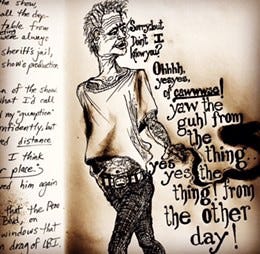 the show,
all the dep-
table from
were always
sheriff's jail,
show's production
of the show
that I'd call
my "gumption"
but
distance
I think
place."
him again
that the
on
windows that
drag of
Sorry, but
Don't I
Know you?
Ohhhh,
yesyes,
of cawwwse!
yaw the
guhl from
the thing...
yes yes, the
thing! from
the other
day!